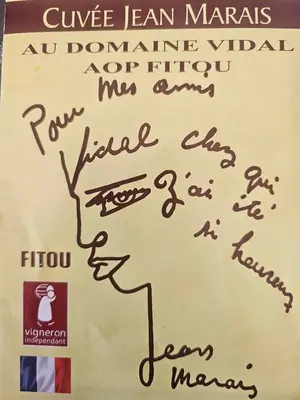 CUVÉE JEAN MARAIS
AU DOMAINE VIDAL
AOP FITOU
Pour mes amis
Vidal chez qui
J'ai été
si heureux
FITOU
vigneron
indépendant
Jean
Marais